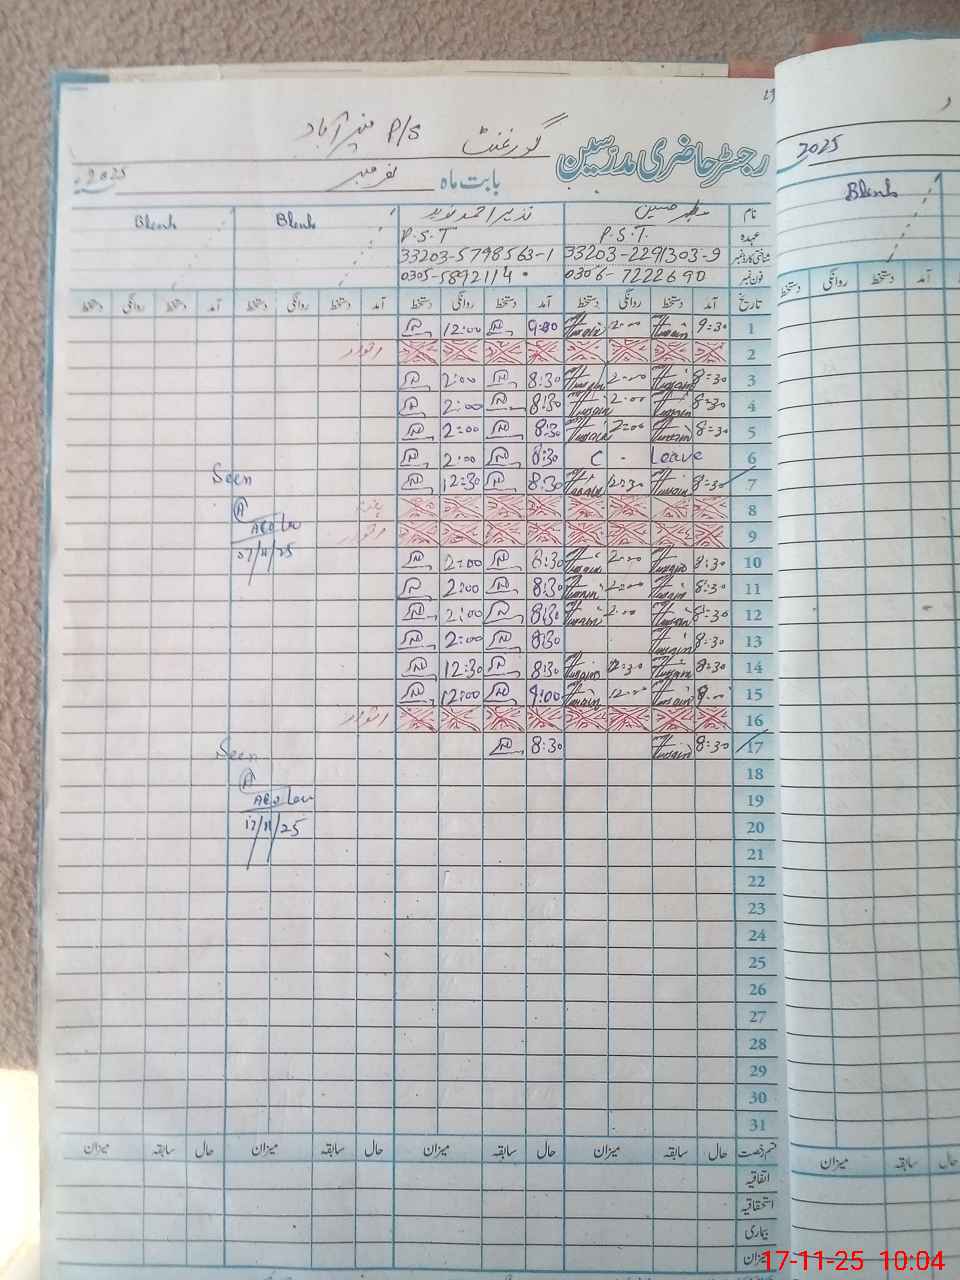 رجسٹر حاضری مدرسین گورنمنٹ P/S منیر آباد
بابت ماہ نومبر 2025ء
2025
نام حسین نذیر احمد نوید Blank Blank
Blank
عہدہ P.S.T. P.S.T
شناختی کارڈ نمبر 33203-2291303-9 33203-5798563-1
فون نمبر 0306-7222690 0305-5892114
تاریخ آمد دستخط روانگی دستخط آمد دستخط روانگی دستخط آمد دستخط روانگی دستخط آمد دستخط روانگی دستخط
دستخط روانگی دستخط
1 9:30 Husain 2:00 Husain 9:00 12:00
2 اتوار
3 8:30 Husain 2:00 Husain 8:30 2:00
4 8:30 Husain 2:00 Husain 8:30 2:00
5 8:30 Husain 2:00 Husain 8:30 2:00
6 C - Leave 8:30 2:00
7 8:30 Husain 12:30 Husain 8:30 12:30
Seen
8
9 اتوار
07/11/25
10 8:30 Husain 2:00 Husain 8:30 2:00
11 8:30 Husain 2:00 Husain 8:30 2:00
12 8:30 Husain 2:00 Husain 8:30 2:00
13 8:30 Husain 8:30 2:00
14 8:30 Husain 12:30 Husain 8:30 12:30
15 Husain 12:00 Husain 9:00 12:00
16 اتوار
17 8:30 Husain 8:30
Seen
18
19
20
17/11/25
21
22
23
24
25
26
27
28
29
30
31
قسم رخصت حال سابقہ میزان حال سابقہ میزان حال سابقہ میزان حال سابقہ میزان
حال سابقہ میزان
اتفاقیہ
استحقاقیہ
بیماری
میزان
17-11-25 10:04